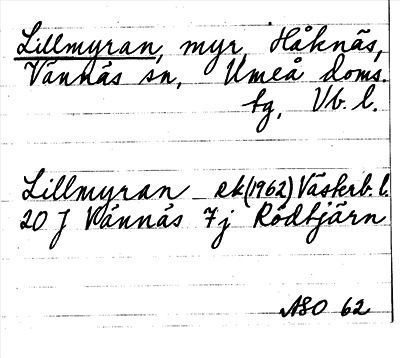 Lillmyran, myr, Håknäs,
Vännäs sn, Umeå doms.
tg, Vb. l.
Lillmyran ek(1962) Västerb. l.
20 J Vännäs 7j Rödtjärn
ASO 62